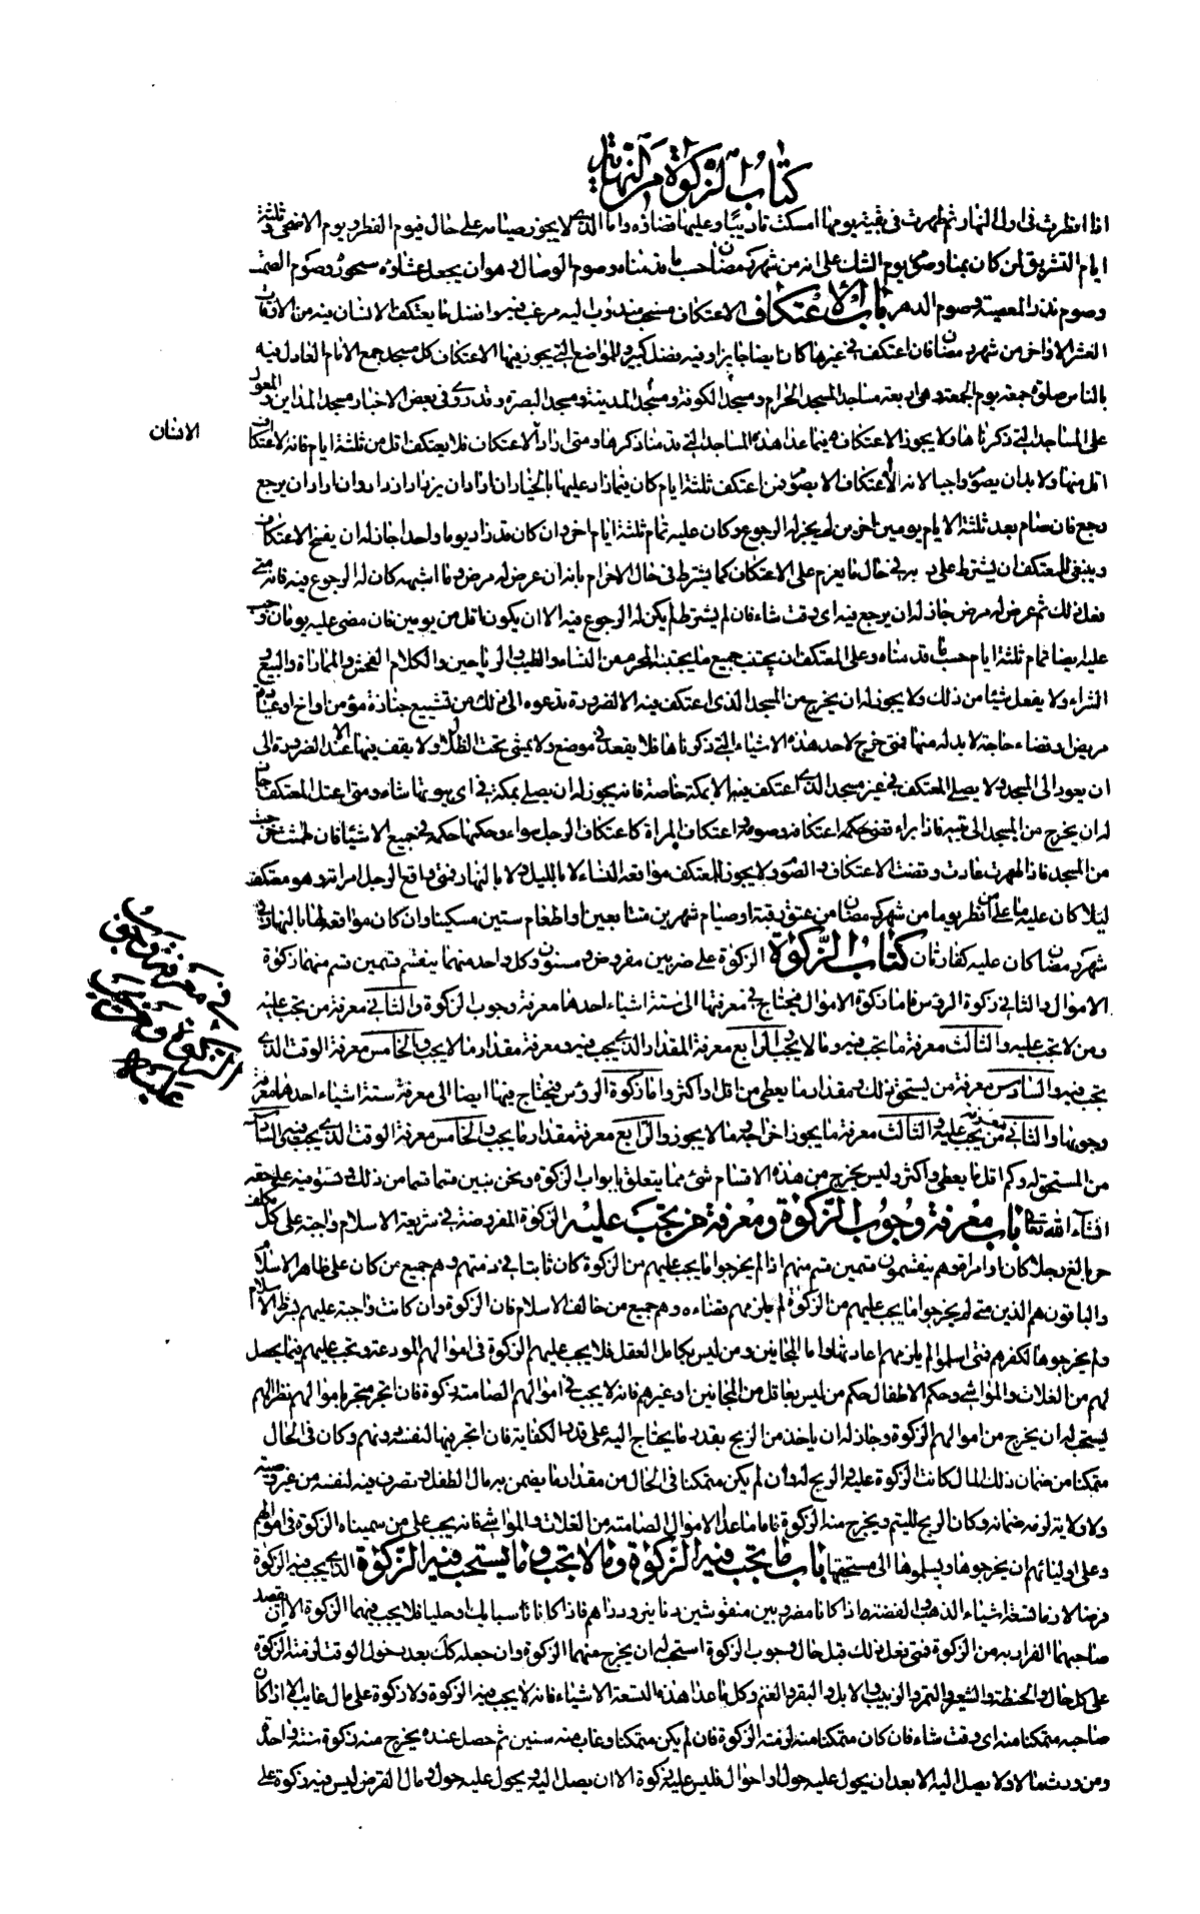 كتاب الزكوة من النهاية
اذا افطرت فى اول النهار ثم طهرت فى بقية يومها امسكت تاديبا وعليها قضاؤه واما الذى لا يجوز صيامه على حال فيوم الفطر ويوم الاضحى وثلثة
ايام التشريق لمن كان بمنا وصوم يوم الشك على انه من شهر رمضان حسب ما قدمناه وصوم الوصال وهو ان يجعل عشاؤه سحوره وصوم الصمت
وصوم نذر المعصية وصوم الدهر باب الاعتكاف الاعتكاف مستحب مندوب اليه مرغب فيه وافضل ما يعتكف الانسان فيه من الاوقات
العشر الاواخر من شهر رمضان فان اعتكف فى غيرها كان ايضا جايزا وفيه فضل كبير والمواضع التى يجوز فيها الاعتكاف كل مسجد جمع الامام العادل فيه
بالناس صلوة جمعة يوم الجمعة وهى اربعة مساجد المسجد الحرام ومسجد الكوفة ومسجد المدينة ومسجد البصرة وقد روى فى بعض الاخبار مسجد المداين والمعول
على المساجد التى ذكرناها ولا يجوز الاعتكاف فيما عدا هذه المساجد التى قدمنا ذكرها ومتى اراد الاعتكاف فلا يعتكف اقل من ثلثة ايام فانه لا اعتكاف
الانسان
اقل منها ولا بد ان يصوم واجبا لانه لا اعتكاف الا بصوم فمن اعتكف ثلثة ايام كان فيما زاد عليها بالخيار ان اراد ان يزداد ازداد وان اراد ان يرجع
رجع فان صام بعد ثلثة الايام يومين اخرين لم يجز له الرجوع وكان عليه تمام ثلثة ايام اخر وان كان قد زاد يوما واحدا جاز له ان يفسخ الاعتكاف
وينبغى للمعتكف ان يشترط على ربه فى حال ما يعزم على الاعتكاف كما يشترط فى حال الاحرام بانه ان عرض له مرض او ما اشبهه كان له الرجوع فيه فانه متى
فعل ذلك ثم عرض له مرض جاز له ان يرجع فيه اى وقت شاء فان لم يشترط لم يكن له الرجوع فيه الا ان يكون اقل من يومين فان مضى عليه يومان وجب
عليه ايضا تمام ثلثة ايام حسب ما قدمناه وعلى المعتكف ان يجتنب جميع ما يجتنبه المحرم من النساء والطيب والرياحين والكلام الفحش والمماراة والبيع و
الشراء ولا يفعل شيئا من ذلك ولا يجوز له ان يخرج من المسجد الذى اعتكف فيه الا لضرورة تدعوه الى ذلك من تشييع جنازة مؤمن او اخ او عيادة
مريض او قضاء حاجة لا بد له منها فمتى خرج لاحد هذه الاشياء التى ذكرناها فلا يقعد فى موضع ولا يمشى تحت الظلال ولا يقف فيها الا عند الضرورة الى
ان يعود الى المسجد ولا يصلى المعتكف فى غير مسجد الذى اعتكف فيه الا بمكة خاصة فانه يجوز له ان يصلى بمكة فى اى بيوتها شاء ومتى اعتل المعتكف جاز
له ان يخرج من المسجد الى بيته فاذا براء قضى حكم اعتكافه وصومه واعتكاف المراة كاعتكاف الرجل سواء وحكمها حكمه فى جميع الاشياء فان طمثت خرجت
من المسجد فاذا طهرت عادت وقضت الاعتكاف والصوم ولا يجوز للمعتكف مواقعة النساء لا بالليل ولا بالنهار فمتى واقع الرجل امراته وهو معتكف
ليلا كان عليه ما على من افطر يوما من شهر رمضان من عتق رقبة او صيام شهرين متتابعين او اطعام ستين مسكينا وان كان مواقعة لها بالنهار فى
شهر رمضان كان عليه كفارتان كتاب الزكوة الزكوة على ضربين مفروض ومسنون وكل واحد منهما ينقسم قسمين قسم منهما زكوة
الاموال والثانى زكوة الرؤس فاما زكوة الاموال فيحتاج فى معرفتها الى ستة اشياء احدها معرفة وجوب الزكوة والثانى معرفة من يجب عليه
ومن لا تجب عليه والثالث معرفة ما تجب فيه وما لا تجب والرابع معرفة المقدار الذى يجب فيه ومعرفة مقدار ما لا يجب والخامس معرفة الوقت الذى
تجب فيه والسادس معرفة من يستحق ذلك ومقدار ما يعطى من اقل او اكثر واما زكوة الرؤس فيحتاج فيها ايضا الى معرفة ستة اشياء احدها معرفة
وجوبها والثانى معرفة من يجب عليه والثالث معرفة ما يجوز اخراجه وما لا يجوز والرابع معرفة مقدار ما يجب والخامس معرفة الوقت الذى يجب فيه والسادس
من المستحق له وكم اقل ما يعطى واكثر وليس يخرج من هذه الاقسام شئ مما يتعلق بابواب الزكوة ونحن نبين قسما قسما من ذلك ونستوفيه على حقه
انشاء الله تعالى باب معرفة وجوب الزكوة ومعرفة من تجب عليه الزكوة المفروضة فى شريعة الاسلام واجبة على كل مكلف
فى معرفة وجوب الزكوة ومن تجب عليه
حر بالغ رجلا كان او امراة وهم ينقسمون قسمين قسم منهم اذا لم يخرجوا ما يجب عليهم من الزكوة كان ثابتا فى ذمتهم وهم جميع من كان على ظاهر الاسلام
والباقون هم الذين متى لم يخرجوا ما يجب عليهم من الزكوة لم يلزمهم قضاءه وهم جميع من خالف الاسلام فان الزكوة وان كانت واجبة عليهم بشرط الاسلام
ولم يخرجوها لكفرهم فمتى اسلموا لم يلزمهم اعادتها واما المجانين ومن ليس بكامل العقل فلا يجب عليهم الزكوة فى اموالهم المودعة وتجب عليهم فيما يحصل
لهم من الغلات والمواشى وحكم الاطفال حكم من ليس بعاقل من المجانين وغيرهم فانه لا يجب فى اموالهم الصامتة زكوة فان اتجر متجر باموالهم نظرا لهم
يستحب له ان يخرج من اموالهم الزكوة وجاز له ان ياخذ من الربح بقدر ما يحتاج اليه على قدر الكفاية فان اتجر بها لنفسه دونهم وكان فى الحال
متمكنا من ضمان ذلك المال كانت الزكوة عليه والربح له وان لم يكن متمكنا فى الحال من مقدار ما يضمن به مال الطفل وتصرف فيه لنفسه من غير وصية
ولا ولاية لزمه ضمانه وكان الربح لليتيم ويخرج منه الزكوة فاما ما عدا الاموال الصامتة من الغلات والمواشى فانه يجب على من سميناه الزكوة فى اموالهم
وعلى اوليائهم ان يخرجوها ويسلموها الى مستحقها باب ما تجب فيه الزكوة وما لا تجب وما يستحب فيه الزكوة الذى يجب فيه الزكوة
فرضا لازما تسعة اشياء الذهب والفضة اذا كانا مضروبين منقوشين دنانير ودراهم فاذا كانا سبايك او حليا فلا يجب فيهما الزكوة الا ان يقصد
صاحبهما الفرار به من الزكوة فمتى فعل ذلك قبل حال وجوب الزكوة استحب له ان يخرج منهما الزكوة وان جعله كذلك بعد دخول الوقت لزمته الزكوة
على كل حال والحنطة والشعير والتمر والزبيب والابل والبقر والغنم وكل ما عدا هذه التسعة الاشياء فانه لا يجب فيه الزكوة ولا زكوة على مال غايب الا اذا كان
صاحبه متمكنا منه اى وقت شاء فان كان متمكنا منه لزمته الزكوة فان لم يكن متمكنا وغاب عنه سنين ثم حصل عنده يخرج منه زكوة سنة واحدة
ومن ورث مالا ولا يصل اليه الا بعد ان يحول عليه حول او احوال فليس عليه زكوة الا ان يصل اليه ويحول عليه حول ومال القرض ليس فيه زكوة على